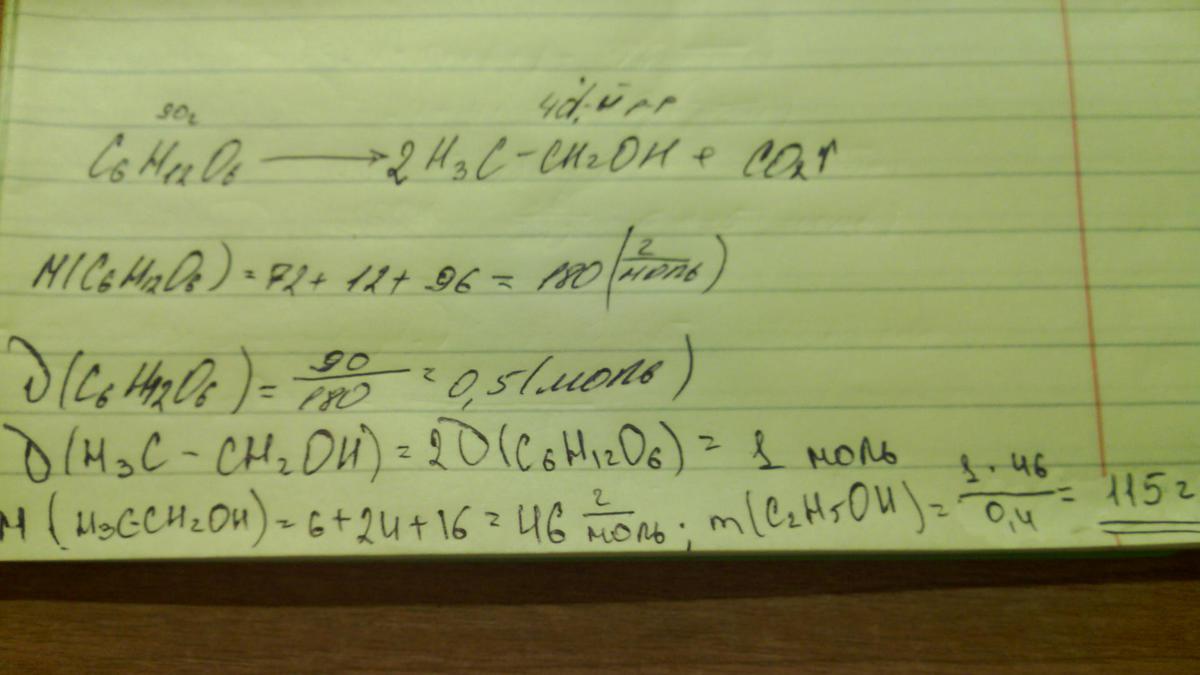 90г
C₆H₁₂O₆ ⟶ 2H₃C-CH₂OH + CO₂↑
M(C₆H₁₂O₆) = 72 + 12 + 96 = 180 (г/моль)
ν(C₆H₁₂O₆) = 90/180 = 0,5 (моль)
ν(H₃C - CH₂OH) = 2ν(C₆H₁₂O₆) = 1 моль
M(H₃C-CH₂OH) = 6 + 24 + 16 = 46 г/моль; m(C₂H₅OH) = 1·46/0,4 = 115 г